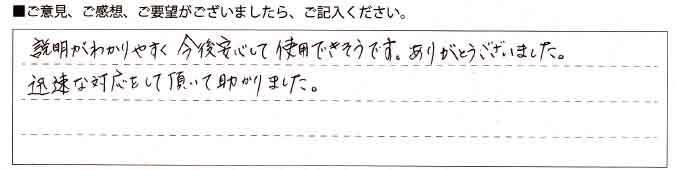 ■ご意見、ご感想、ご要望がございましたら、ご記入ください。
説明がわかりやすく今後安心して使用できそうです。ありがとうございました。
迅速な対応をして頂いて助かりました。